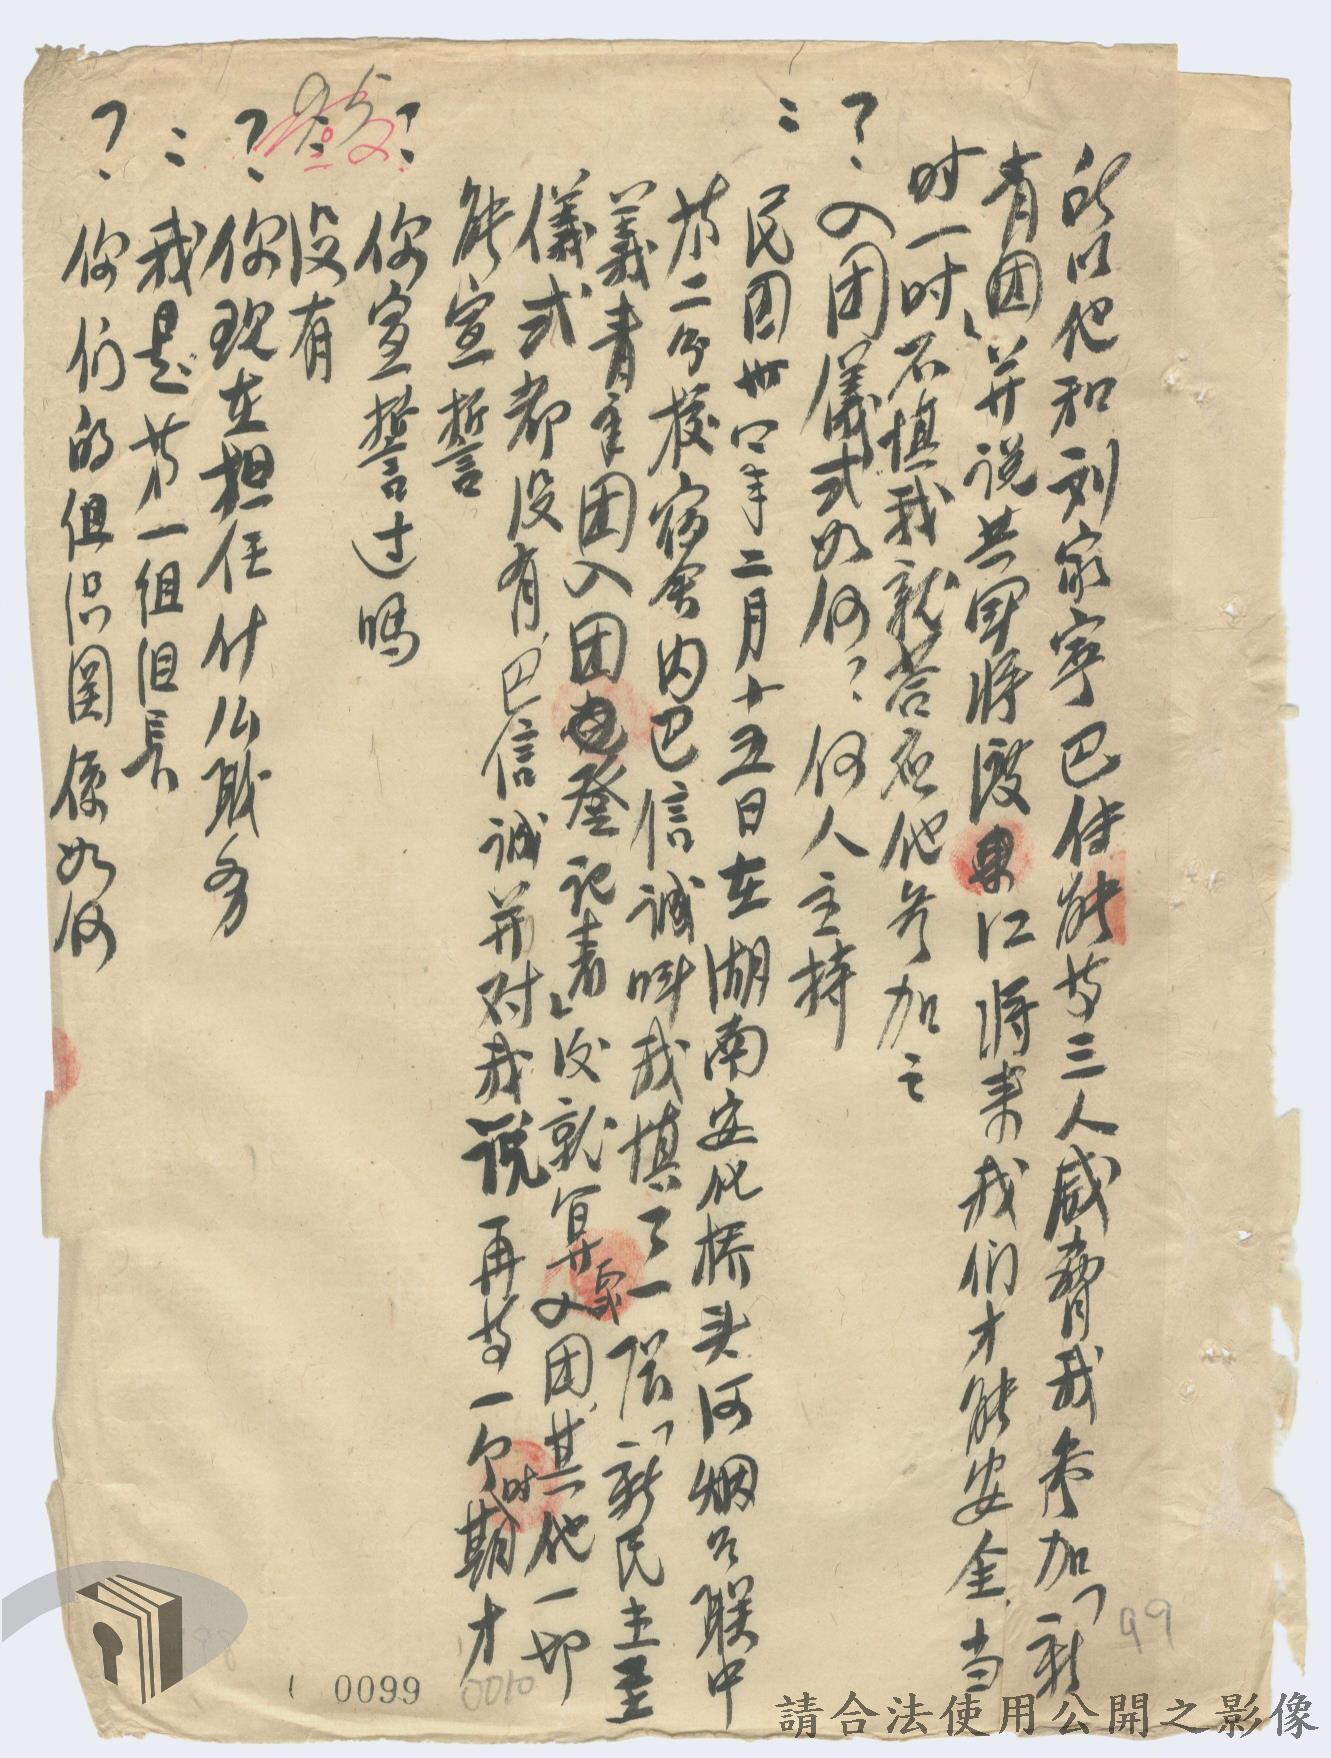 所以他和刘家宁巴信能等三人威胁我参加「新
青团」并说共軍将渡粤江将来我们才能安全当
时一时不慎我就答应他参加之
？入团儀式如何？何人主持
：民国卅四年二月十五日在湖南安化桥头河烟谷联中
第二分校宿舍内巴信诚叫我填了一张「新民主主
義青年团入团登记表」後就算入团其他一切
儀式都没有，巴信诚并对我说再等一个时期才
能宣誓
？你宣誓过吗
：没有
？你现在担任什么职务
：我是第一组组长
？你们的组织関係如何
99
0099
0010
請合法使用公開之影像